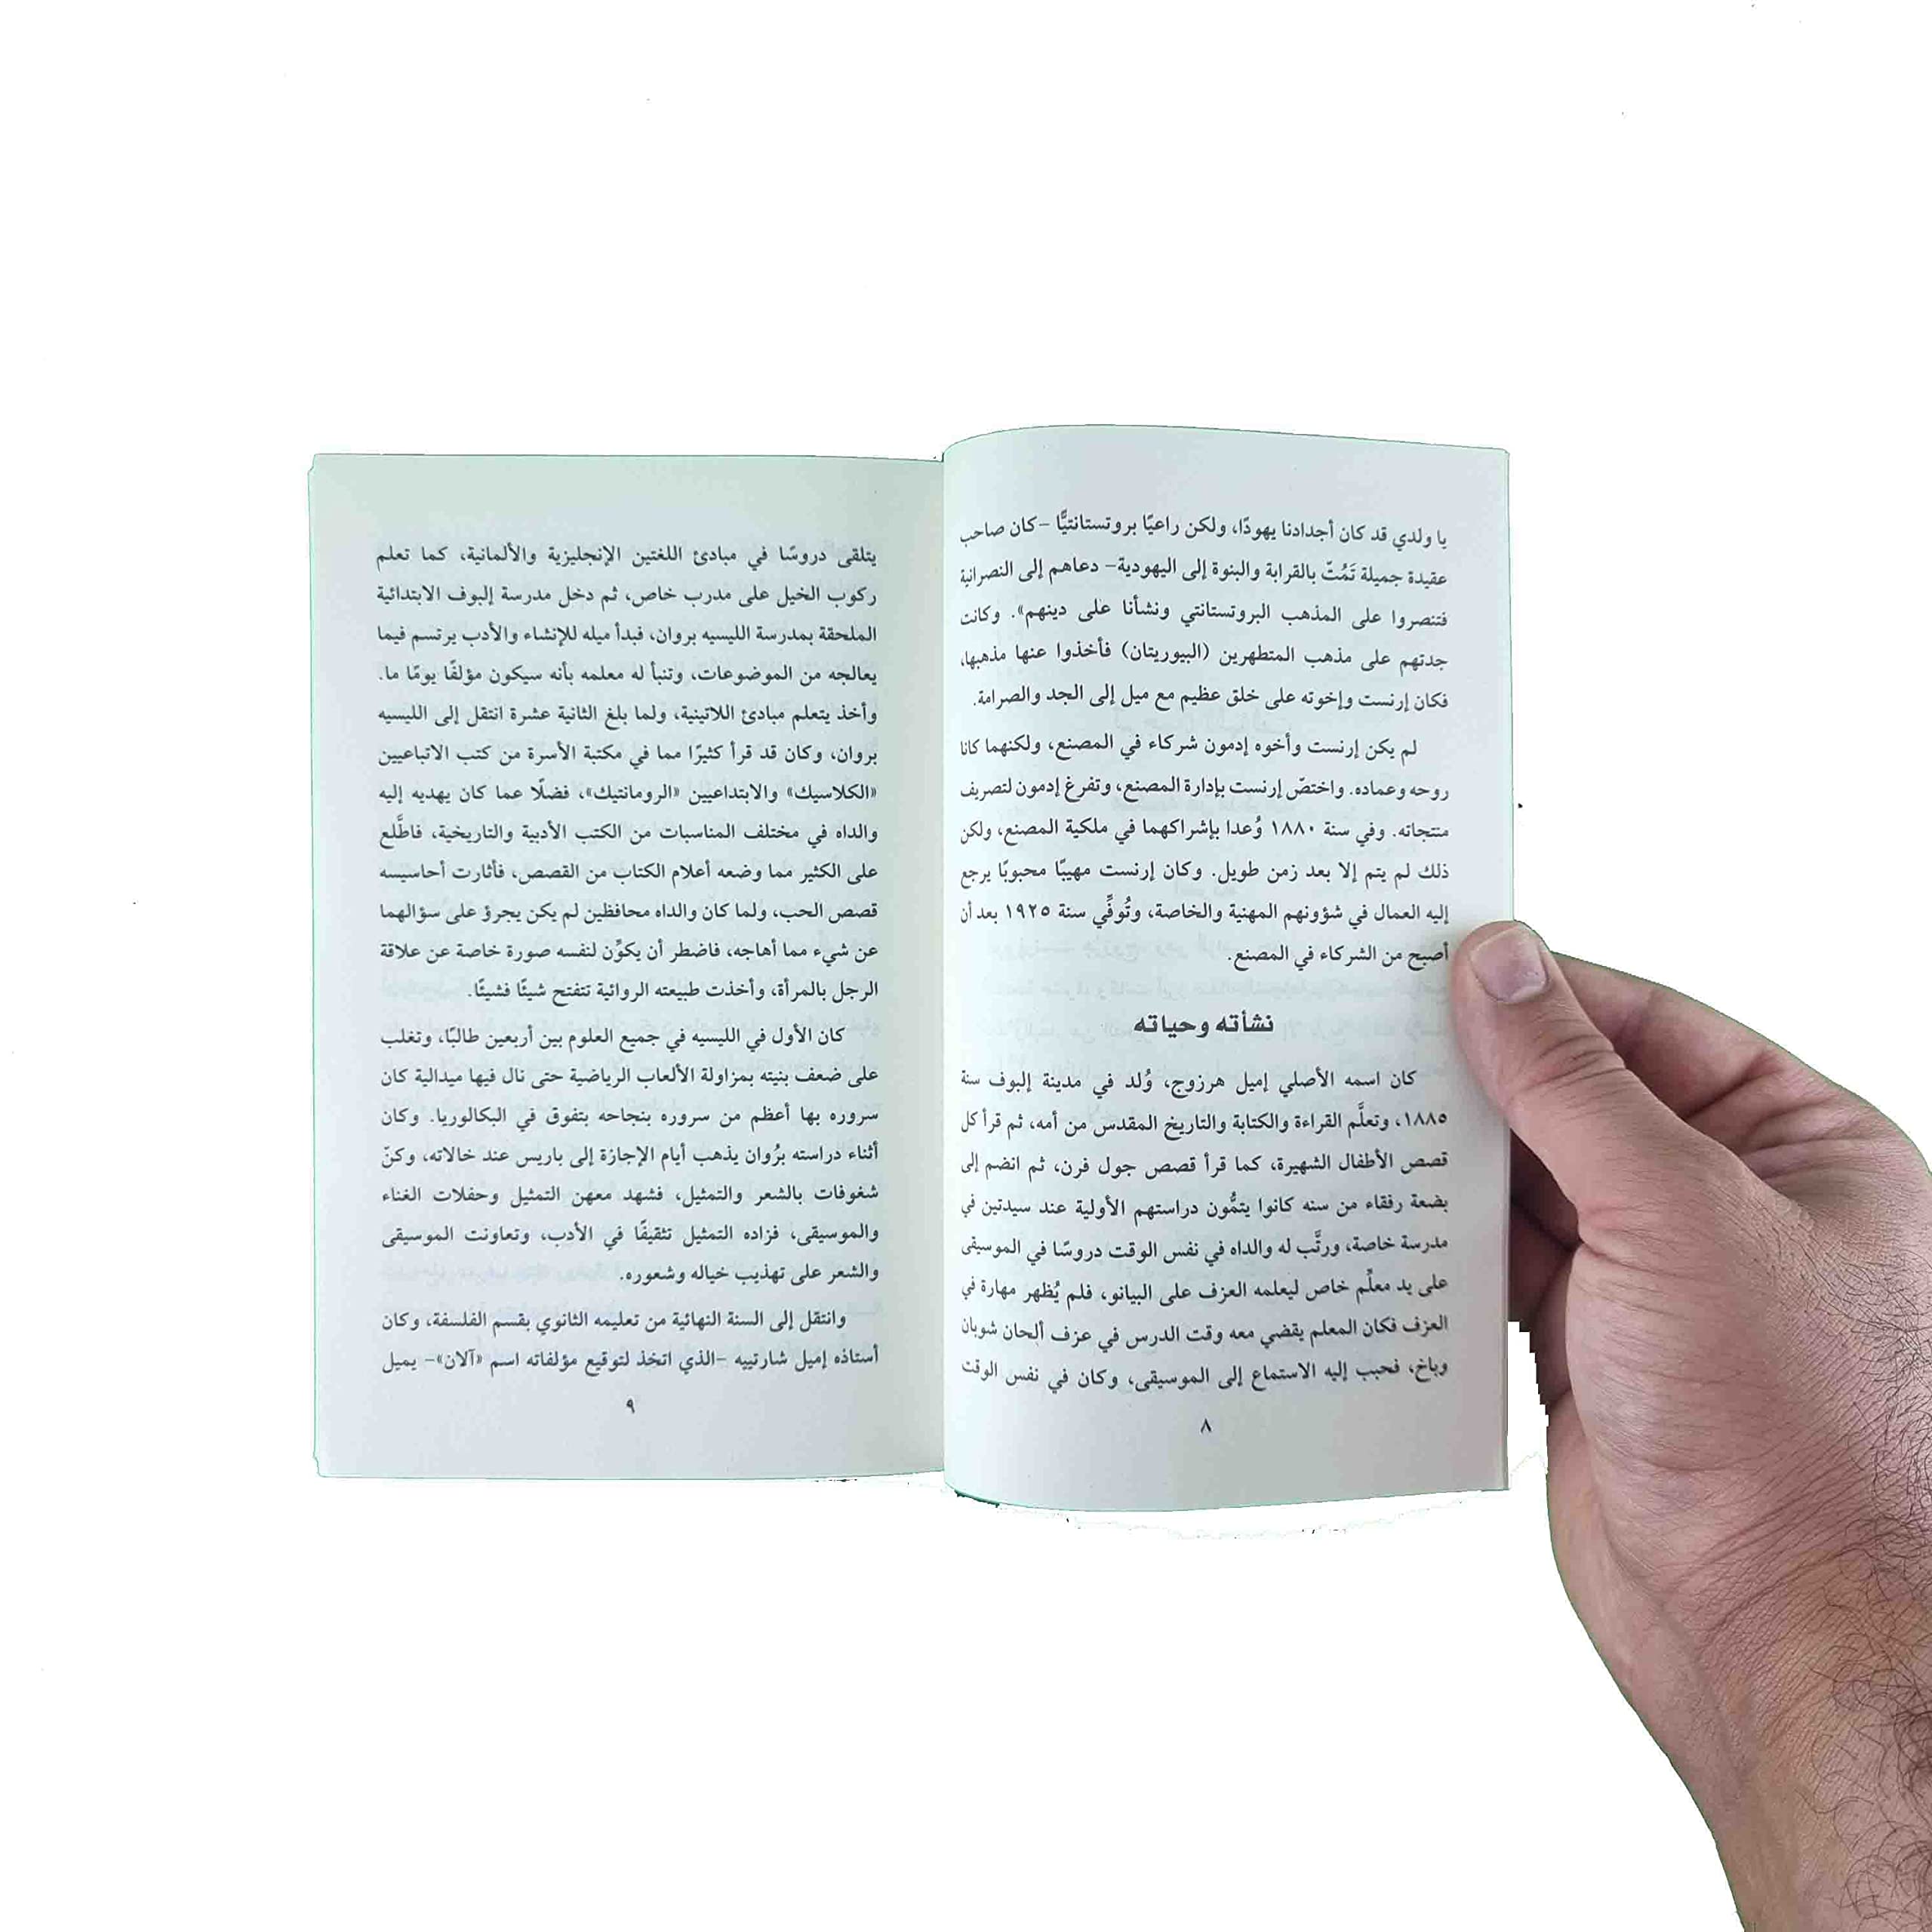 يا ولدي قد كان أجدادنا يهودًا، ولكن راعيًا بروتستانتيًّا –كان صاحب
عقيدة جميلة تَمُتّ بالقرابة والبنوة إلى اليهودية– دعاهم إلى النصرانية
فتنصروا على المذهب البروتستانتي ونشأنا على دينهم». وكانت
جدتهم على مذهب المتطهرين (البيوريتان) فأخذوا عنها مذهبها،
فكان إرنست وإخوته على خلق عظيم مع ميل إلى الجد والصرامة.
لم يكن إرنست وأخوه إدمون شركاء في المصنع، ولكنهما كانا
روحه وعماده. واختصّ إرنست بإدارة المصنع، وتفرغ إدمون لتصريف
منتجاته. وفي سنة ١٨٨٠ وُعدا بإشراكهما في ملكية المصنع، ولكن
ذلك لم يتم إلا بعد زمن طويل. وكان إرنست مهيبًا محبوبًا يرجع
إليه العمال في شؤونهم المهنية والخاصة، وتُوفِّي سنة ١٩٢٥ بعد أن
أصبح من الشركاء في المصنع.
نشأته وحياته
كان اسمه الأصلي إميل هرزوج، وُلد في مدينة إلبوف سنة
١٨٨٥، وتعلَّم القراءة والكتابة والتاريخ المقدس من أمه، ثم قرأ كل
قصص الأطفال الشهيرة، كما قرأ قصص جول فرن، ثم انضم إلى
بضعة رفقاء من سنه كانوا يتمُّون دراستهم الأولية عند سيدتين في
مدرسة خاصة، ورتَّب له والداه في نفس الوقت دروسًا في الموسيقى
على يد معلِّم خاص ليعلمه العزف على البيانو، فلم يُظهر مهارة في
العزف فكان المعلم يقضي معه وقت الدرس في عزف ألحان شوبان
وباخ، فحبب إليه الاستماع إلى الموسيقى، وكان في نفس الوقت
٨
يتلقى دروسًا في مبادئ اللغتين الإنجليزية والألمانية، كما تعلم
ركوب الخيل على مدرب خاص، ثم دخل مدرسة إلبوف الابتدائية
الملحقة بمدرسة الليسيه بروان، فبدأ ميله للإنشاء والأدب يرتسم فيما
يعالجه من الموضوعات، وتنبأ له معلمه بأنه سيكون مؤلفًا يومًا ما.
وأخذ يتعلم مبادئ اللاتينية، ولما بلغ الثانية عشرة انتقل إلى الليسيه
بروان، وكان قد قرأ كثيرًا مما في مكتبة الأسرة من كتب الاتباعيين
«الكلاسيك» والابتداعيين «الرومانتيك»، فضلًا عما كان يهديه إليه
والداه في مختلف المناسبات من الكتب الأدبية والتاريخية، فاطَّلع
على الكثير مما وضعه أعلام الكتاب من القصص، فأثارت أحاسيسه
قصص الحب، ولما كان والداه محافظين لم يكن يجرؤ على سؤالهما
عن شيء مما أهاجه، فاضطر أن يكوِّن لنفسه صورة خاصة عن علاقة
الرجل بالمرأة، وأخذت طبيعته الروائية تتفتح شيئًا فشيئًا.
كان الأول في الليسيه في جميع العلوم بين أربعين طالبًا، وتغلب
على ضعف بنيته بمزاولة الألعاب الرياضية حتى نال فيها ميدالية كان
سروره بها أعظم من سروره بنجاحه بتفوق في البكالوريا. وكان
أثناء دراسته برُوان يذهب أيام الإجازة إلى باريس عند خالاته، وكنّ
شغوفات بالشعر والتمثيل، فشهد معهن التمثيل وحفلات الغناء
والموسيقى، فزاده التمثيل تثقيفًا في الأدب، وتعاونت الموسيقى
والشعر على تهذيب خياله وشعوره.
وانتقل إلى السنة النهائية من تعليمه الثانوي بقسم الفلسفة، وكان
أستاذه إميل شارتييه –الذي اتخذ لتوقيع مؤلفاته اسم «آلان»– يميل
٩